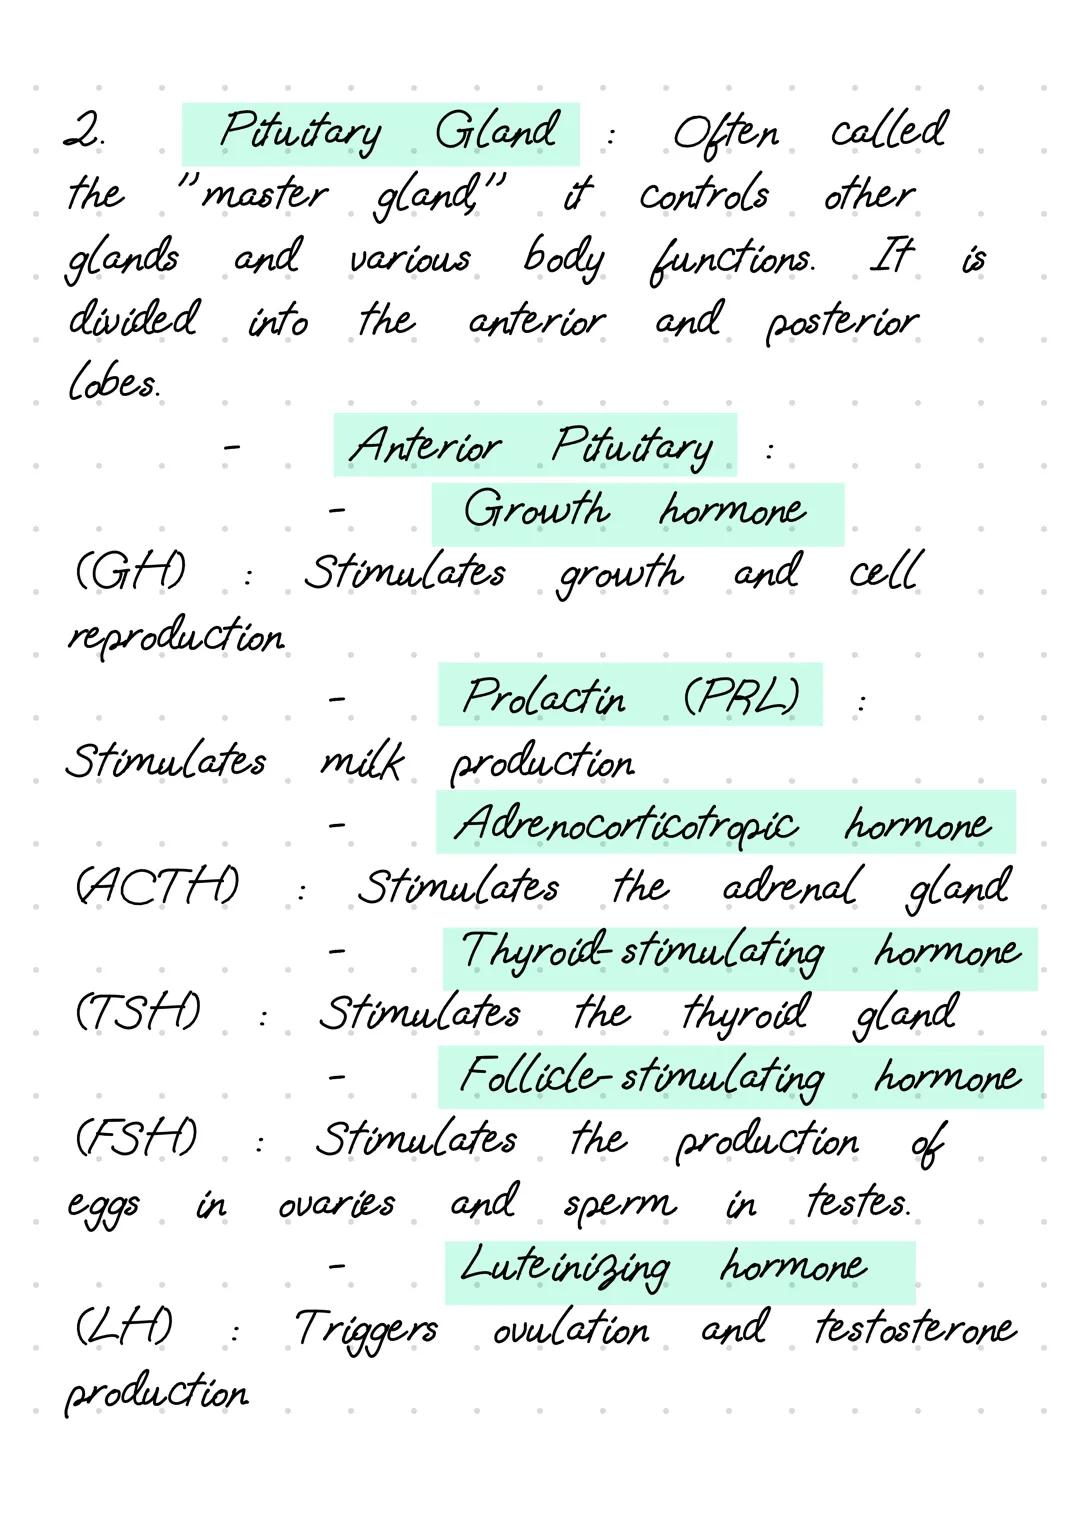 2. Pituitary Gland : Often called
the "master gland," it controls other
glands and various body functions. It is
divided into the anterior and posterior
lobes.
- Anterior Pituitary :
- Growth hormone
(GH) : Stimulates growth and cell
reproduction
- Prolactin (PRL) :
Stimulates milk production
- Adrenocorticotropic hormone
(ACTH) : Stimulates the adrenal gland
- Thyroid-stimulating hormone
(TSH) : Stimulates the thyroid gland
- Follicle-stimulating hormone
(FSH) : Stimulates the production of
eggs in ovaries and sperm in testes.
- Luteinizing hormone
(LH) : Triggers ovulation and testosterone
production